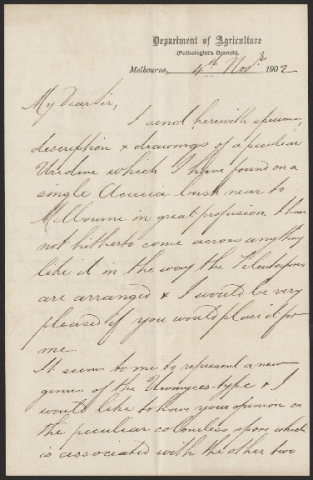 Department of Agriculture
(Pathologist's Branch),
Melbourne, 4th Novr. 1902
My Dear Sir,
I send herewith specimen,
description & drawings of a peculiar
Uredine which I have found on a
single Acacia bush near to
Melbourne in great profusion. I have
not hitherto come across anything
like it in the way the Teleutospores
are arranged & I would be very
pleased if you would place it for
me.
It seems to me to represent a new
genus of the Uromyces-type & I
would like to have your opinion on
the peculiar colourless spore which
is associated with the other two